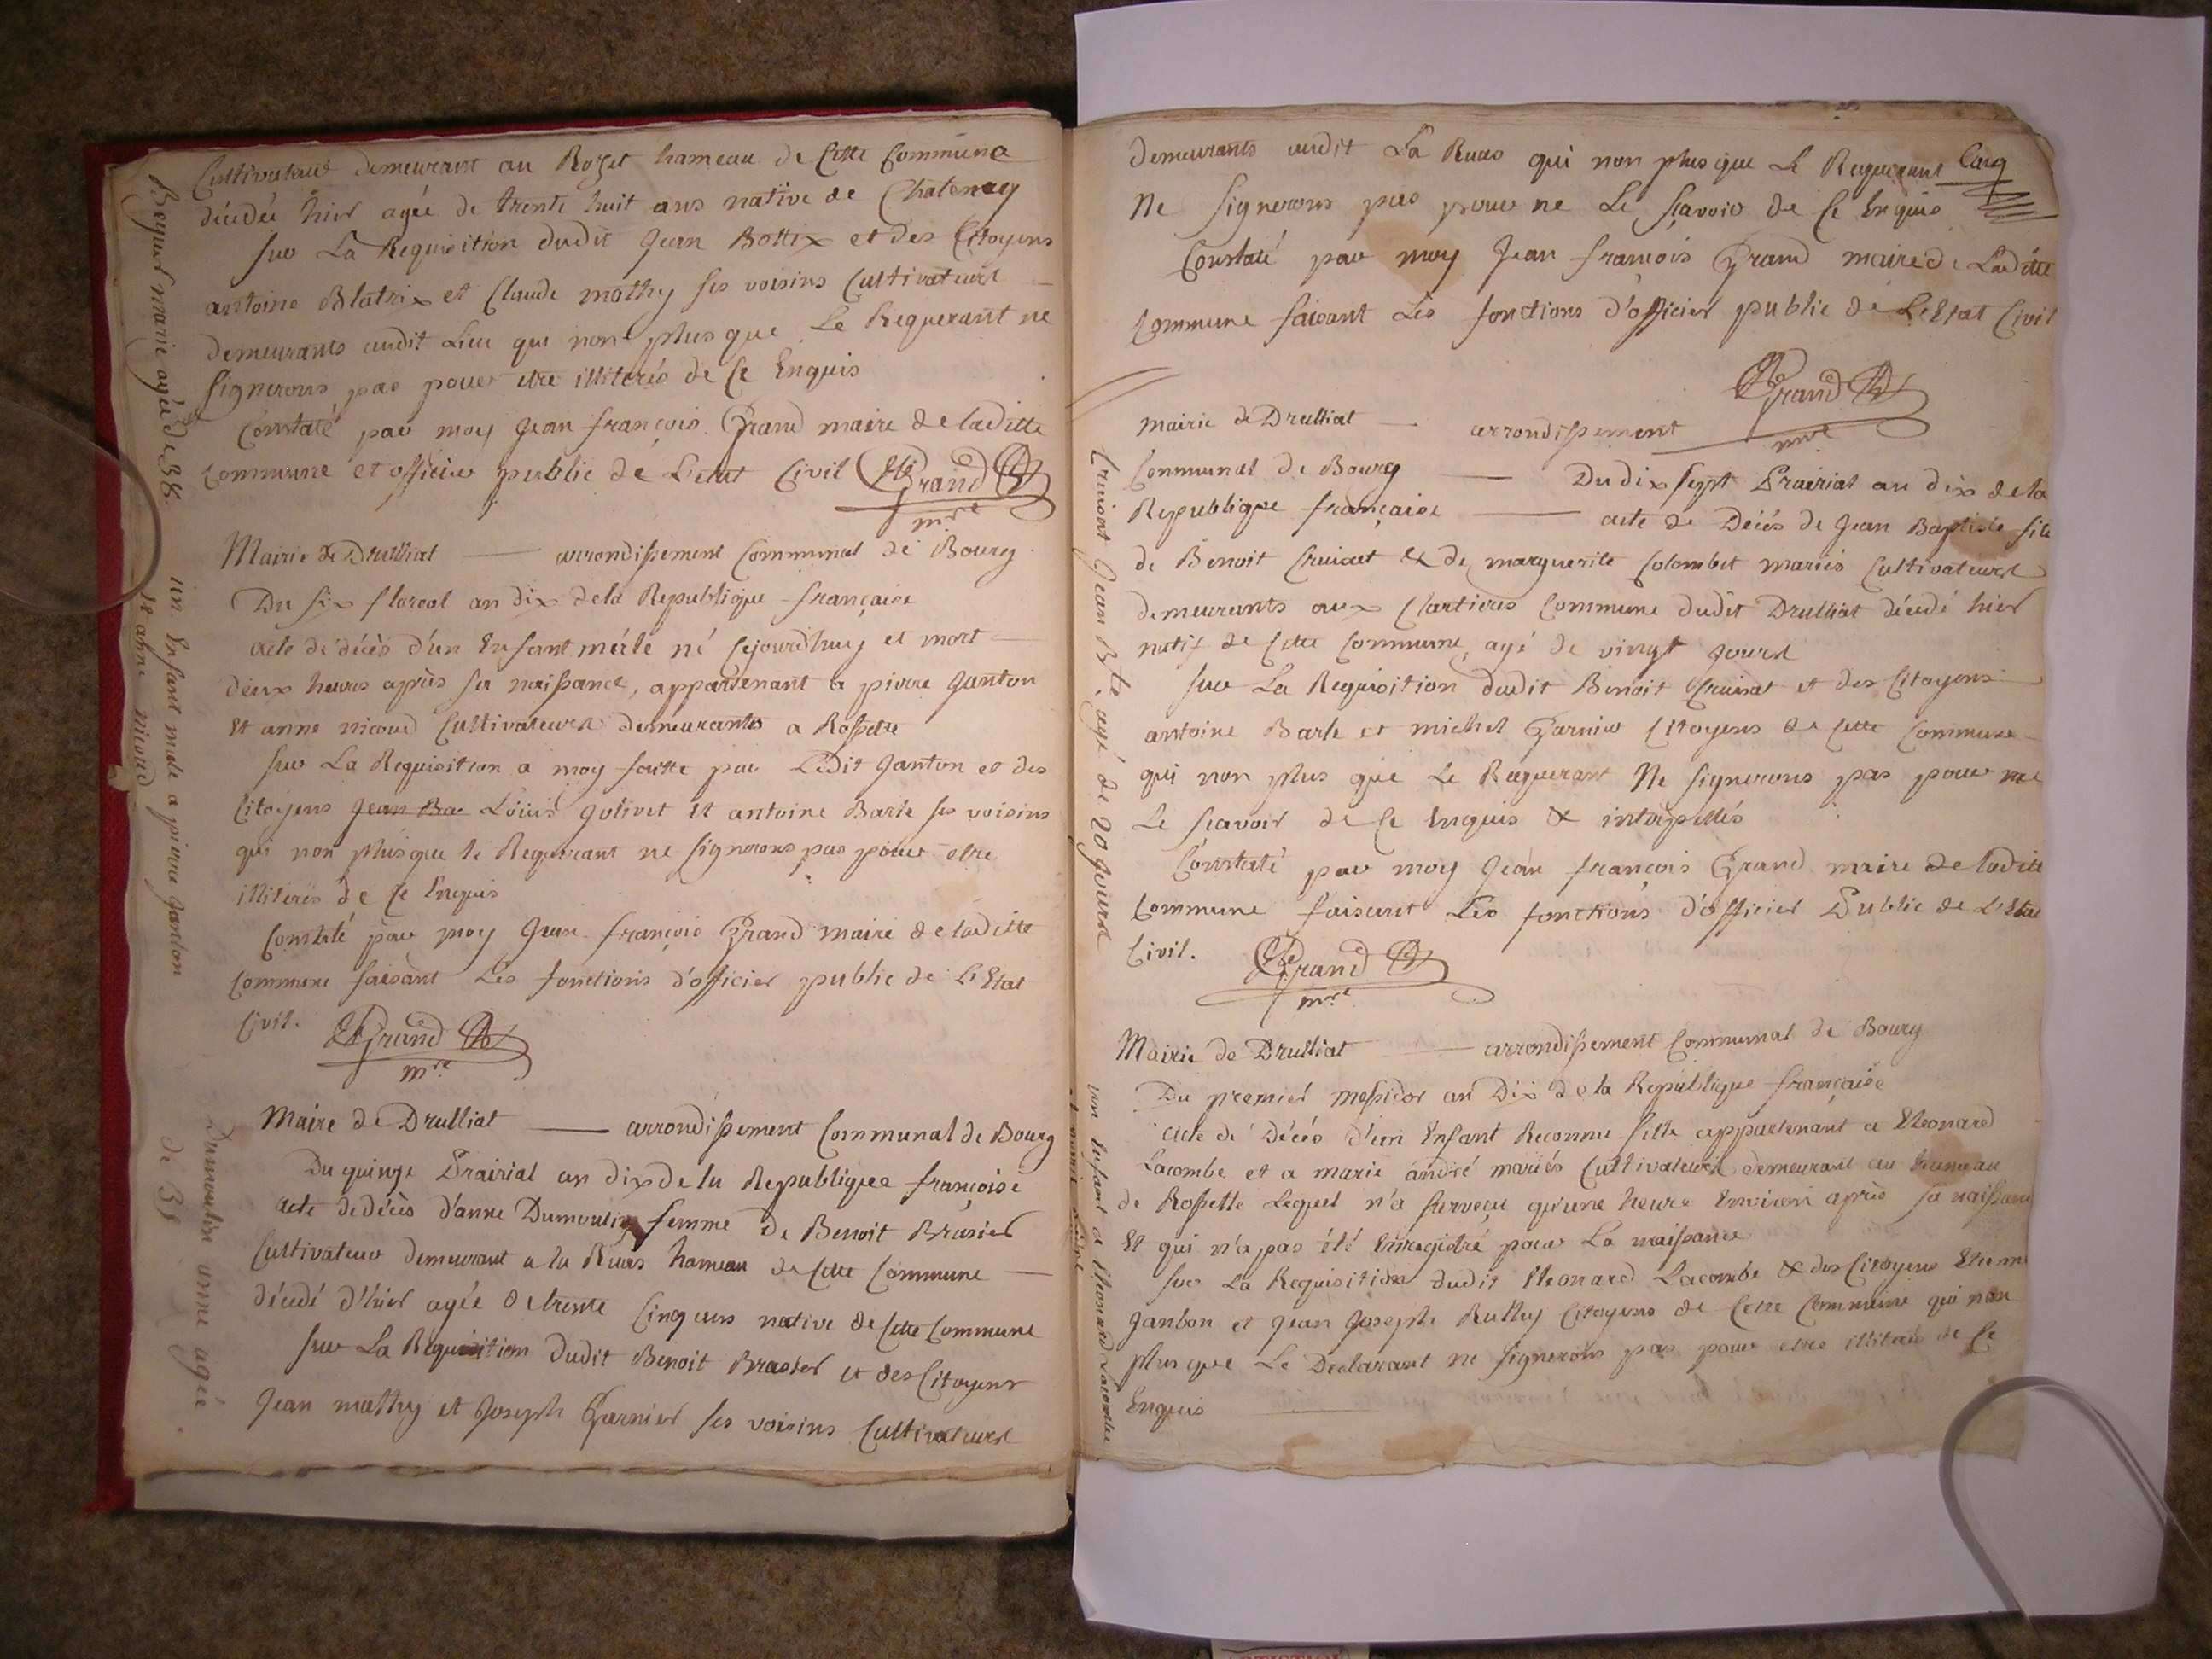 Cultivateur demeurant au Rozet hameau de Cette Commune
décédée hier agée de trente huit ans native de Chatenay
sur La Requisition dudit Jean Bottix et des Citoyens
antoine Blatrix et Claude mathy ses voisins Cultivateurs
demeurants audit Lieu qui non plus que Le Requerant ne
signerons pas pour etre illiterés de Ce Enquis
Constaté par moy Jean françois Grand maire de laditte
Commune et officier public de L'etat Civil Grand
mre
Mairie de Drulliat — arrondissement Communal de Bourg
Du six floreal an dix dela Republique française
acte de décès d'un Enfant mérle né Cejourdhuy et mort
deux heures après sa naissance, appartenant a pierre Janton
Et anne nicoud Cultivateurs demeurants a Rossette
sur La Requisition a moy faitte par Ledit Janton et des
Citoyens Jean Ba Louis Jolivet Et antoine Barle ses voisins
qui non plus que le Requerant ne signerons pas pour etre
illiterés de Ce Enquis
Constaté par moy Jean françois Grand maire de laditte
Commune faisant Les fonctions d'officier public de L'Etat
Civil. Grand
mre
Maire de Drulliat — arrondissement Communal de Bourg
Du quinze Prairial an dix de la Republique françoise
acte de décès d'anne Dumoulin femme de Benoit Brasier
Cultivateur demeurant a la Ruas hameau de Cette Commune
décédé d'hier agée de trente Cinq ans native de Cette Commune
sur La Requisition dudit Benoit Brasier et des Citoyens
Jean mathy et Joseph Garnier ses voisins Cultivateurs
marie agée de 38.
un Enfant male a pierre Janton
et a anne nicoud
Dumoulin anne agée
de 35
demeurants audit La Ruas qui non plus que Le Requerant
Ne signerons pas pour ne Le sçavoir de Ce Enquis
Constaté par moy Jean françois Grand maire de Laditte
Commune faisant Les fonctions d'officier public de L'Etat Civil
Grand
mre
Mairie de Drulliat — arrondissement
Communal de Bourg — Du dix sept Prairial an dix de la
Republique française — acte de Décés de Jean Baptiste fils
de Benoit Cruizat & de marguerite Colombet mariés Cultivateurs
demeurants aux Chartieres Commune dudit Drulliat décédé hier
natif de Cette Commune, agé de vingt jours
sur La Requisition dudit Benoit Cruizat et des Citoyens
antoine Barle et michel Garnier Citoyens de Cette Commune
qui non plus que Le Requerant Ne signerons pas pour ne
Le sçavoir de Ce Enquis & interpellés
Constaté par moy Jean françois Grand maire de ladite
Commune faisant Les fonctions d'officier Public de L'Etat
Civil. Grand
mre
Mairie de Drulliat — arrondissement Communal de Bourg
Du premier messidor an Dix de la Republique française
acte de Décés d'un Enfant Reconnu fille appartenant a Eleonard
Lacombe et a marie andré mariés Cultivateurs demeurant au hameau
de Rossette Lequel n'a servecu qu'une heure Environ après sa naissance
Et qui n'a pas été Enregistré pour La naissance
sur La Requisition dudit Eleonard Lacombe & des Citoyens
Janbon et Jean Joseph Ruthy Citoyens de Cette Commune qui non
plus que Le Declarant ne signerons pas pour etre illiterés de Ce
Enquis
Cruizat Jean Bte, agé de 20 Jours
un Enfant a Eleonard Lacombe